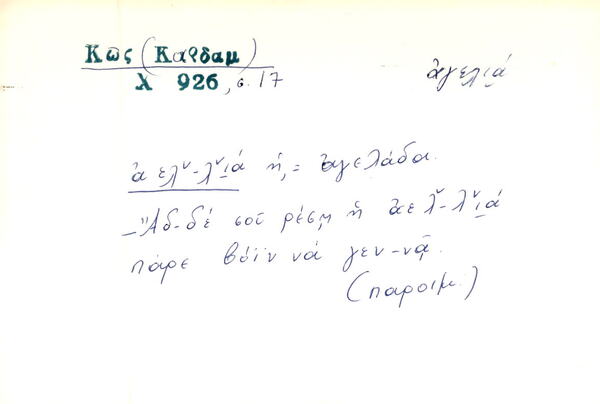 Κῶς (Καρδαμ)
λ 926, σ. 17
ἀγελιά
ἀ ελ̌-λ̌ι̯ά ἡ, = ἀγελάδα.
— Ἄδ-δέ σοῦ ρέσῃ ἡ ἀελ̌-λ̌ι̯ά
πάρε βόϊν νά γεν-νᾷ.
(παροιμ.)